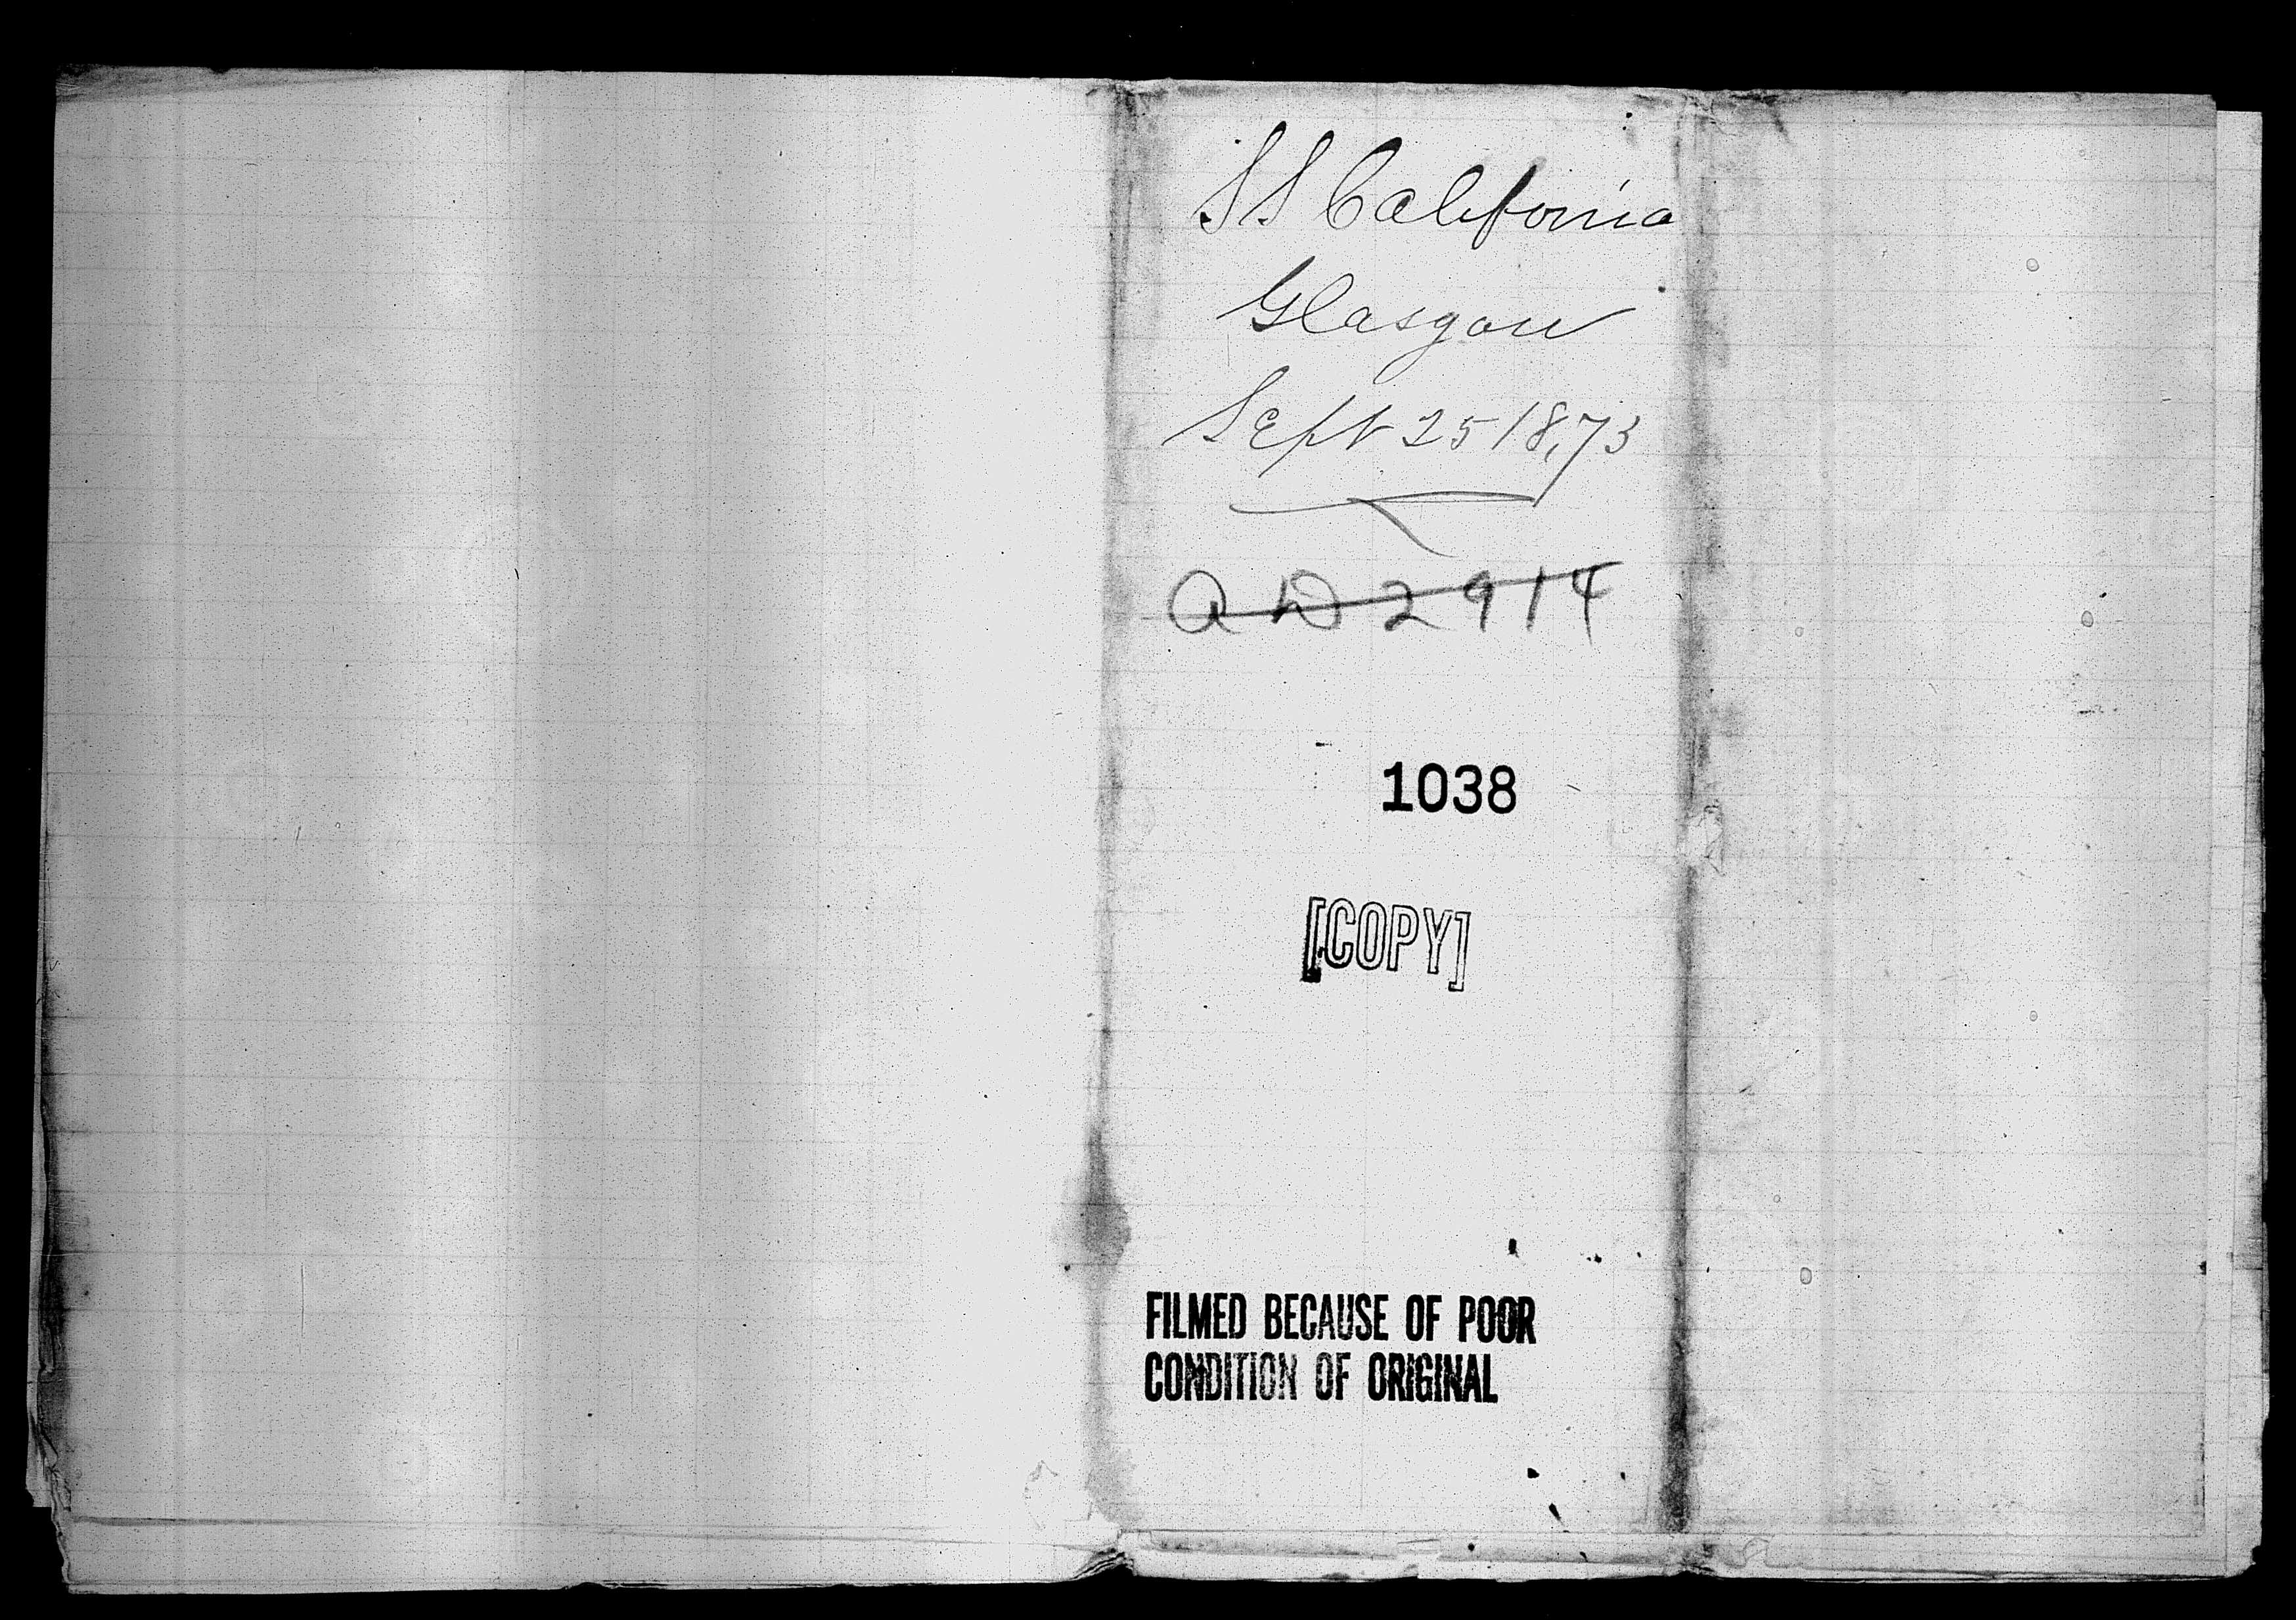 SS California
Glasgow
Sept 25 1873
a W 2914
1038
[COPY]
FILMED BECAUSE OF POOR
CONDITION OF ORIGINAL